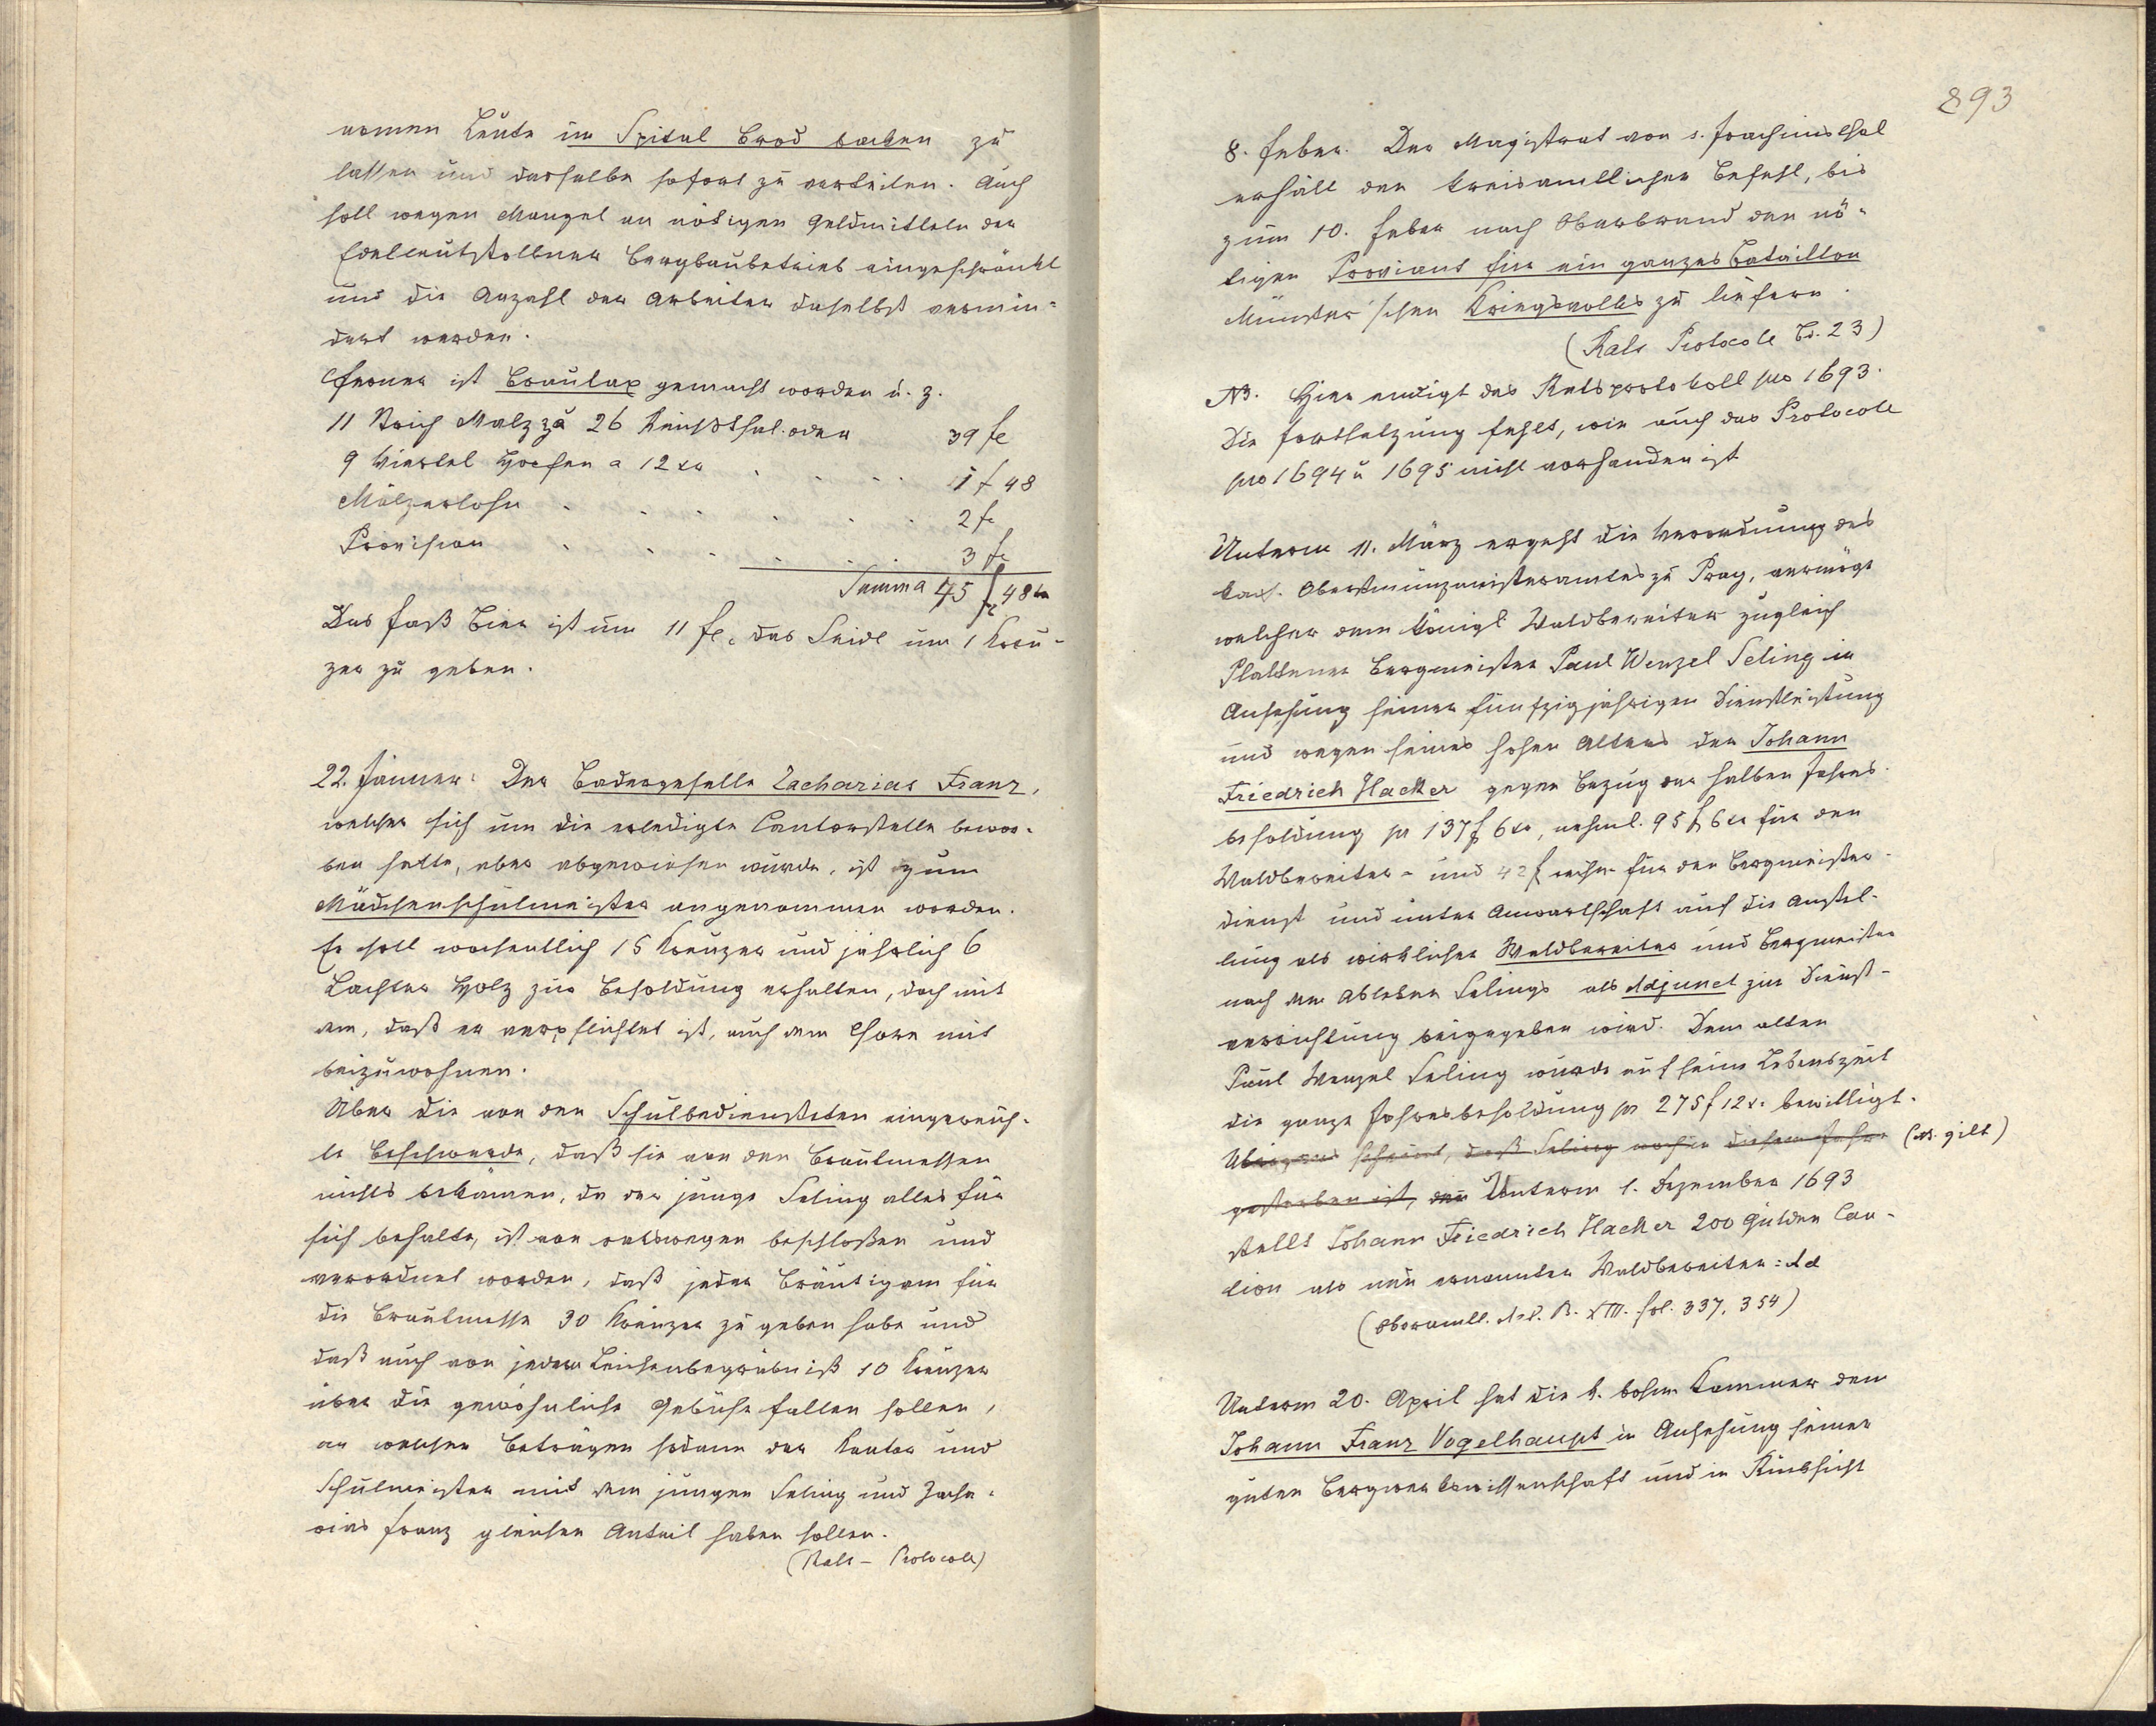 armen Leute im Spital Brod backen zu
lassen und dasselbe sofort zu verteilen. Auch
soll wegen Mangel an nötigen Geldmitteln der
Edelleutstollner Bergbaubetrieb eingeschränkt
und die Anzahl der Arbeiter daselbst vermin-
dert werden.
Ferner ist Brautax gemacht worden u. z.
11 Strich Malz zu 26 Reichsthal. oder 39 fl
9 Viertel Hopfen a 12 xr . . . . 1 f 48
Mälzerlohn . . . . . . 2 fl
Provision . . . . . 3 fl
Summa 45 fl 48 kr
Das Faß Bier ist um 11 fl, das Seidl um 1 Kreu-
zer zu geben.
22. Jänner: Der Badergeselle Zacharias Franz,
welcher sich um die erledigte Cantorstelle bewor-
ben hatte, aber abgewiesen wurde, ist zum
Mädchenschulmeister angenommen worden.
Er soll wochentlich 15 Kreuzer und jährlich 6
Lachter Holz zur Besoldung erhalten, doch mit
dem, daß er verpflichtet ist, auch dem Chore mit
beizuwohnen.
Über die von den Schulbediensteten eingereich-
te Beschwerde, daß sie von den Brautmessen
nichts bekämen, da der junge Seling alles für
sich behalte, ist von ratswegen beschloßen und
verordnet worden, daß jeder Bräutigam für
die Brautmesse 30 Kreuzer zu geben habe und
daß auch von jedem Leichenbegräbniß 10 Kreuzer
über die gewöhnliche Gebühr fallen sollen,
an welchen Beträgen sodann der Kantor und
Schulmeister mit dem jungen Seling und Zacha-
rias Franz gleichen Anteil haben sollen.
(Rats - Protocole)
893
8. Feber. Der Magistrat von s. Joachimsthal
erhält den kreisamtlichen Befehl, bis
zum 10. Feber nach Oberbrand den nö-
tigen Proviant für ein ganzes Bataillon
Münster'schen Kriegsvolkes zu liefern.
(Rats Protocole Bd. 23)
NB. Hier endigt das Ratsprotokoll pro 1693.
Die Fortsetzung fehlt, wie auch das Protocole
pro 1694 u 1695 nicht vorhanden ist
Unterm 11. März ergeht die Verordnung des
kais. Oberstmünzmeisteramtes zu Prag, vermöge
welcher dem königl. Waldbereiter zugleich
Plattener Bergmeister Paul Wenzel Seling in
Ansehung seiner fünfzigjährigen Dienstleistung
und wegen seines hohen Alters der Johann
Friedrich Hacker gegen Bezug der halben Jahres-
besoldung pr 137 f 6 xr, nehml. 95 f 6 xr für den
Waldbereiter- und 42 f für den Bergmeister-
dienst und unter Anwartschaft auf die Anstel-
lung als wirklicher Waldbereiter und Bergmeister
nach dem Ableben Selings als Adjunct zur Dienst-
verrichtung beigegeben wird. Dem alten
Paul Wenzel Seling wurde auf seine Lebenszeit
die ganze Jahresbesoldung pr 275 f 12 xr bewilligt.
Übrigens scheint, daß Seling noch in diesem Jahre (NB. gilt)
gestorben ist, denn Unterm 1. Dezember 1693
stellt Johann Friedrich Hacker 200 Gulden Cau-
tion als neu ernannter Waldbereiter: Ad
(Oberamtl. Act. B. XIII. fol. 337, 354)
Unterm 20. April hat die k. böhm Kammer dem
Johann Franz Vogelhaupt in Ansehung seiner
guten Bergwerkswissenschaft und in Rücksicht